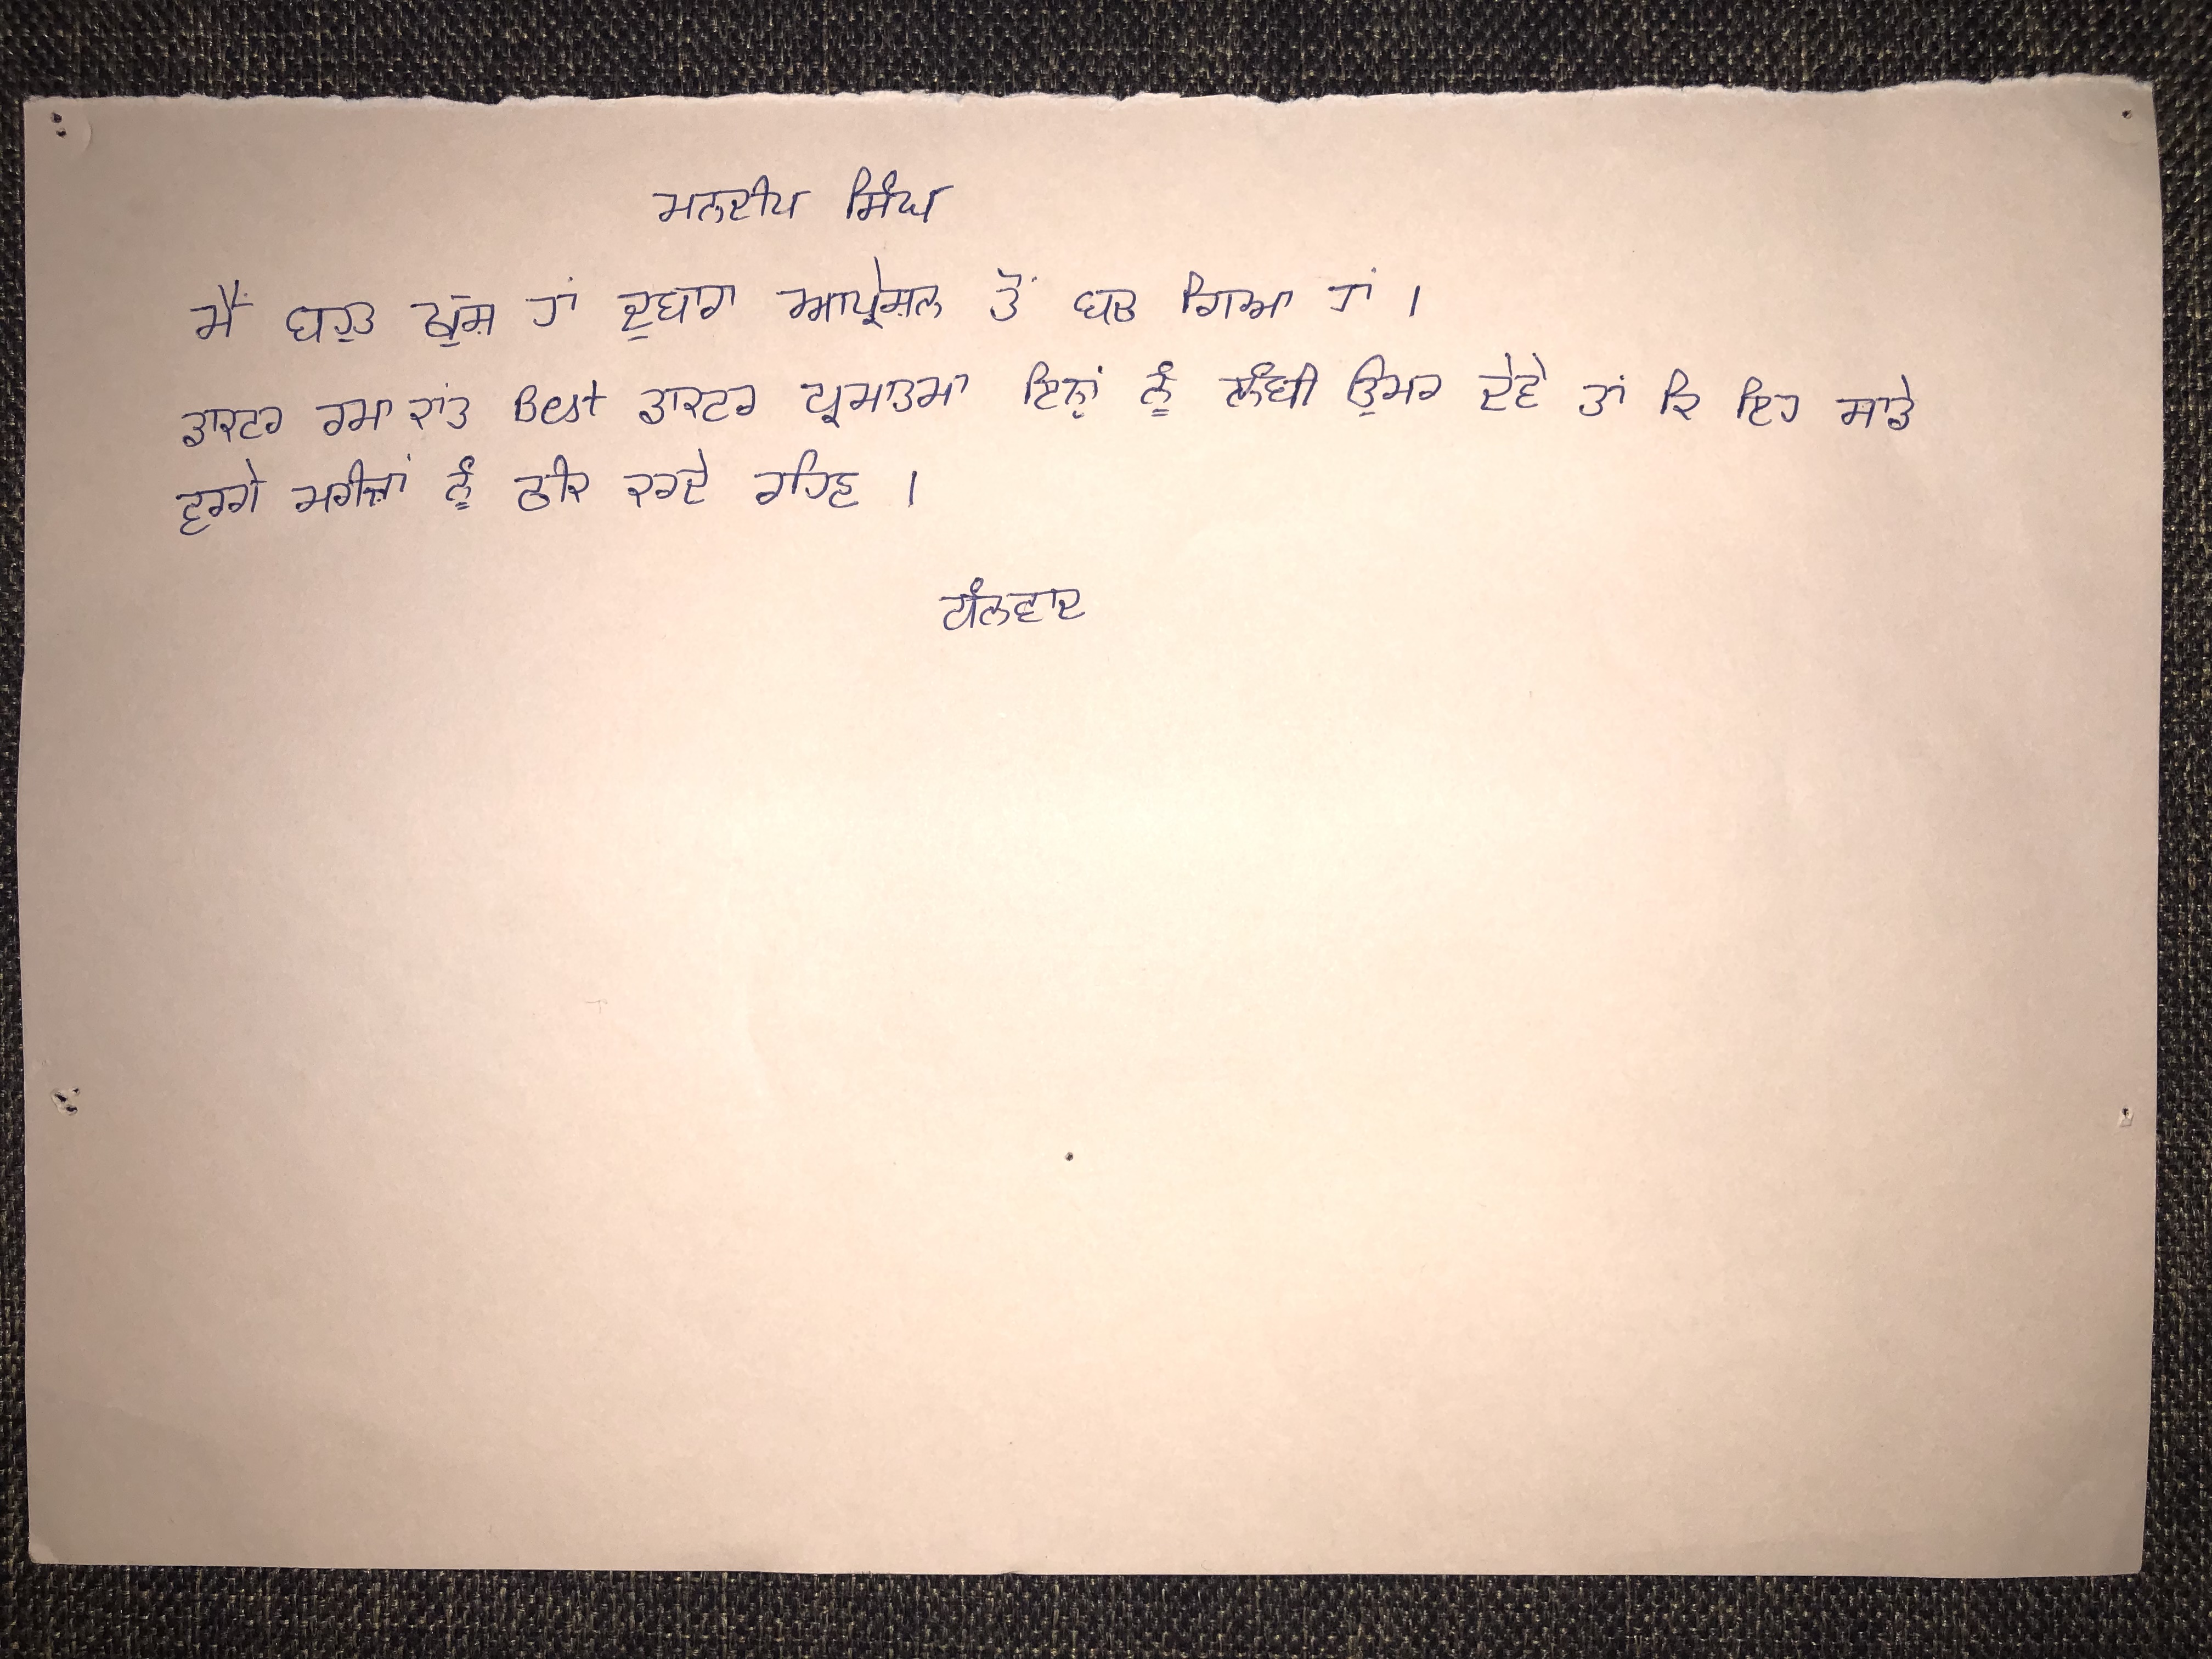 ਮਨਦੀਪ ਸਿੰਘ
ਮੈਂ ਬਹੁਤ ਖੁਸ਼ ਹਾਂ ਦੁਬਾਰਾ ਆਪ੍ਰੇਸ਼ਨ ਤੋਂ ਬਚ ਗਿਆ ਹਾਂ ।
ਡਾਕਟਰ ਰਮਾ ਕਾਂਤ Best ਡਾਕਟਰ ਪ੍ਰਮਾਤਮਾ ਇਨ੍ਹਾਂ ਨੂੰ ਲੰਬੀ ਉਮਰ ਦੇਵੇ ਤਾਂ ਕਿ ਇਹ ਸਾਡੇ
ਵਰਗੇ ਮਰੀਜ਼ਾਂ ਨੂੰ ਠੀਕ ਕਰਦੇ ਰਹਿਣ ।
ਧੰਨਵਾਦ